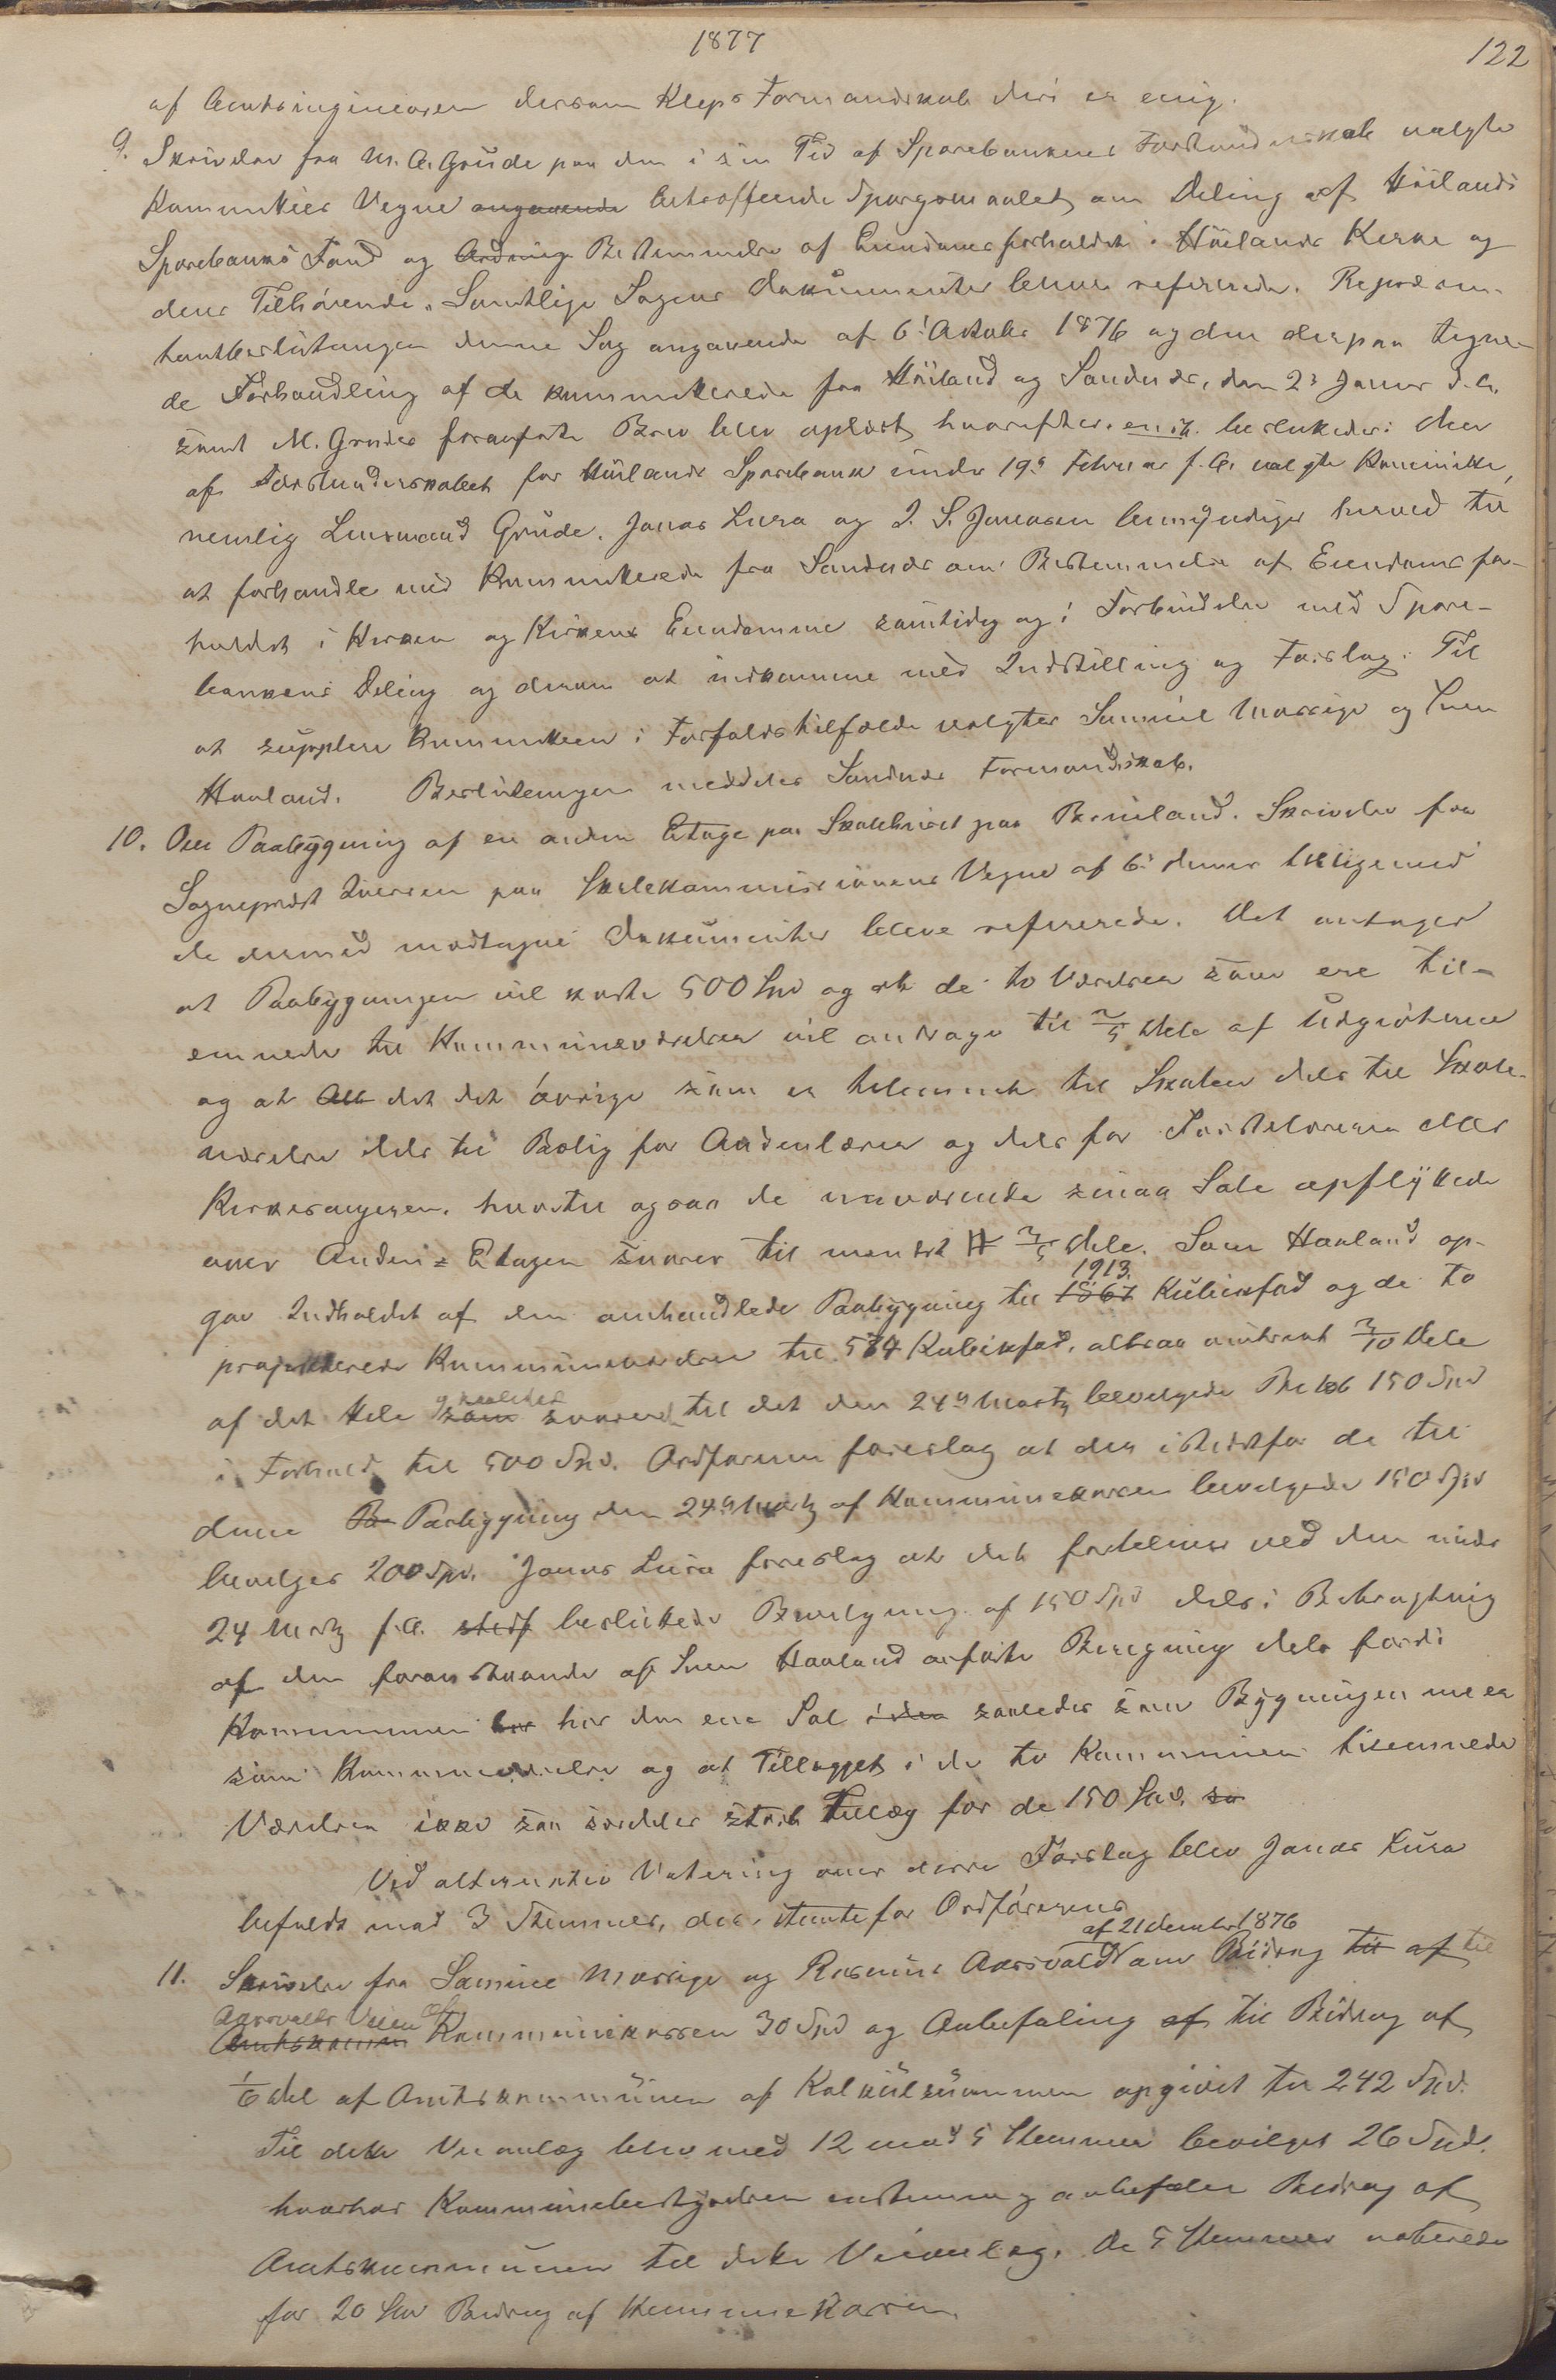 1877
122
af Amtsingeniøren dersom Kleps Formandskab deri er enig.
9. Skrivelse fra M. A. Grude paa den i sin Tid af Sparebankens Forstanderskab valgte
Kommitees Vegne angaaende betræffende Spørgsmaalet om Deling af Höilands
Sparebanks Fond og Ordning Bestemmelse af Eiendomsforholdet i Höilands Kirke og
dens Tilhörende. Samtlige Sagens Dokumenter bleve refererede. Repræsen-
tantbeslutningen denne Sag angaaende af 6te Oktober 1876 og den derpaa tegne-
de Forhandling af de kommitterede fra Höiland og Sandnæs, den 23 Januar d. A.
samt M. Grudes foranførte Brev blev oplæst, hvorefter enst. besluttedes: den
af Forstanderskabet for Höilands Sparebank under 19de Februar f. A. valgte Kommitte,
nemlig Lensmand Grude, Jonas Lura og J. S. Jonassen bemyndiges herved til
at forhandle med Kommitterede fra Sandnæs om Bestemmelse af Eiendomsfor-
holdet i Kirken og Kirkens Eiendomme samtidig og i Forbindelse med Spare-
bankens Deling og derom at indkomme med Indstilling og Forslag. Til
at supplere Kommitteen i Forfaldstilfælde valgtes Samuel Mossige og Sven
Haaland. Beslutningen meddeles Sandnæs Formandskab.
10. Om Paabygning af en anden Etage paa Skolehuset paa Brueland. Skrivelse fra
Sogneprest Iversen paa Skolekommissionens Vegne af 6te dennes tilligemed
de dermed modtagne Dokumenter bleve refererede. Det antages
at Paabygningen vil koste 500 Spd og at de to Værelser som ere til-
emnede til Kommuneværelser vil andrage til 2/5 Dele af Udgifterne
og at Alt det det övrige som er tilemnet til Skolen dels til Skole-
værelse dels til Bolig for Andenlærer og dels for Förstelæreren eller
Kirkesangeren, hvortil ogsaa de nuværende smaa Sale opflyttede
over Anden Etagen svarer til mindst 3/5 Dele. Sven Haaland op-
gav Indholdet af den omhandlede Paabygning til 1867 1913 Kubikfod og de to
projekterede Kommuneværelser til 574 Kubikfod, altsaa omtrent 3/10 Dele
af det Hele som svarende til det den 24de Marts bevilgede Belöb 150 Spd
i Forhold til 500 Spd. Ordföreren foreslog at der istedetfor de til
denne Pa Paabygning den 24de Marts af Kommunekassen bevilgede 150 Spd
bevilges 200 Spd. Jonas Lura foreslog at det forbliver ved den under
24 Marts f. A. stedf besluttede Bevilgning af 150 Spd dels i Betragtning
af den foranstaaende af Sven Haaland anförte Beregning dels fordi
Kommunen har den ene Sal saaledes som Bygningen nu er
som Kommuneværelse og at Tillægget i de to Kommunen tilemnede
Værelser ikke saa særdeles stort Tillæg for de 150 Spd. sa
Ved alternativ Votering over disse Forslag blev Jonas Lura
bifaldt mod 3 Stemmer, der stemte for Ordförerens
11. Skrivelse fra Samuel Mossige og Rasmus Aarsvold af 21 december 1876 om Bidrag til af til
Amtskommun Aarsvolds Veien af Kommunekassen 30 Spd og Anbefaling af til Bidrag af
1/6 del af Amtskommunen af Kalkülsummen opgivet til 242 Spd.
Til dette Veianlæg blev med 12 mod 5 Stemmer bevilget 26 Spd.
hvorhos Kommunebestyrelsen enstemmig anbefaler Bidrag af
Amtskommunen til dette Veianlæg. De 5 Stemmer voterede
for 20 Spd Bidrag af Kommunekassen.